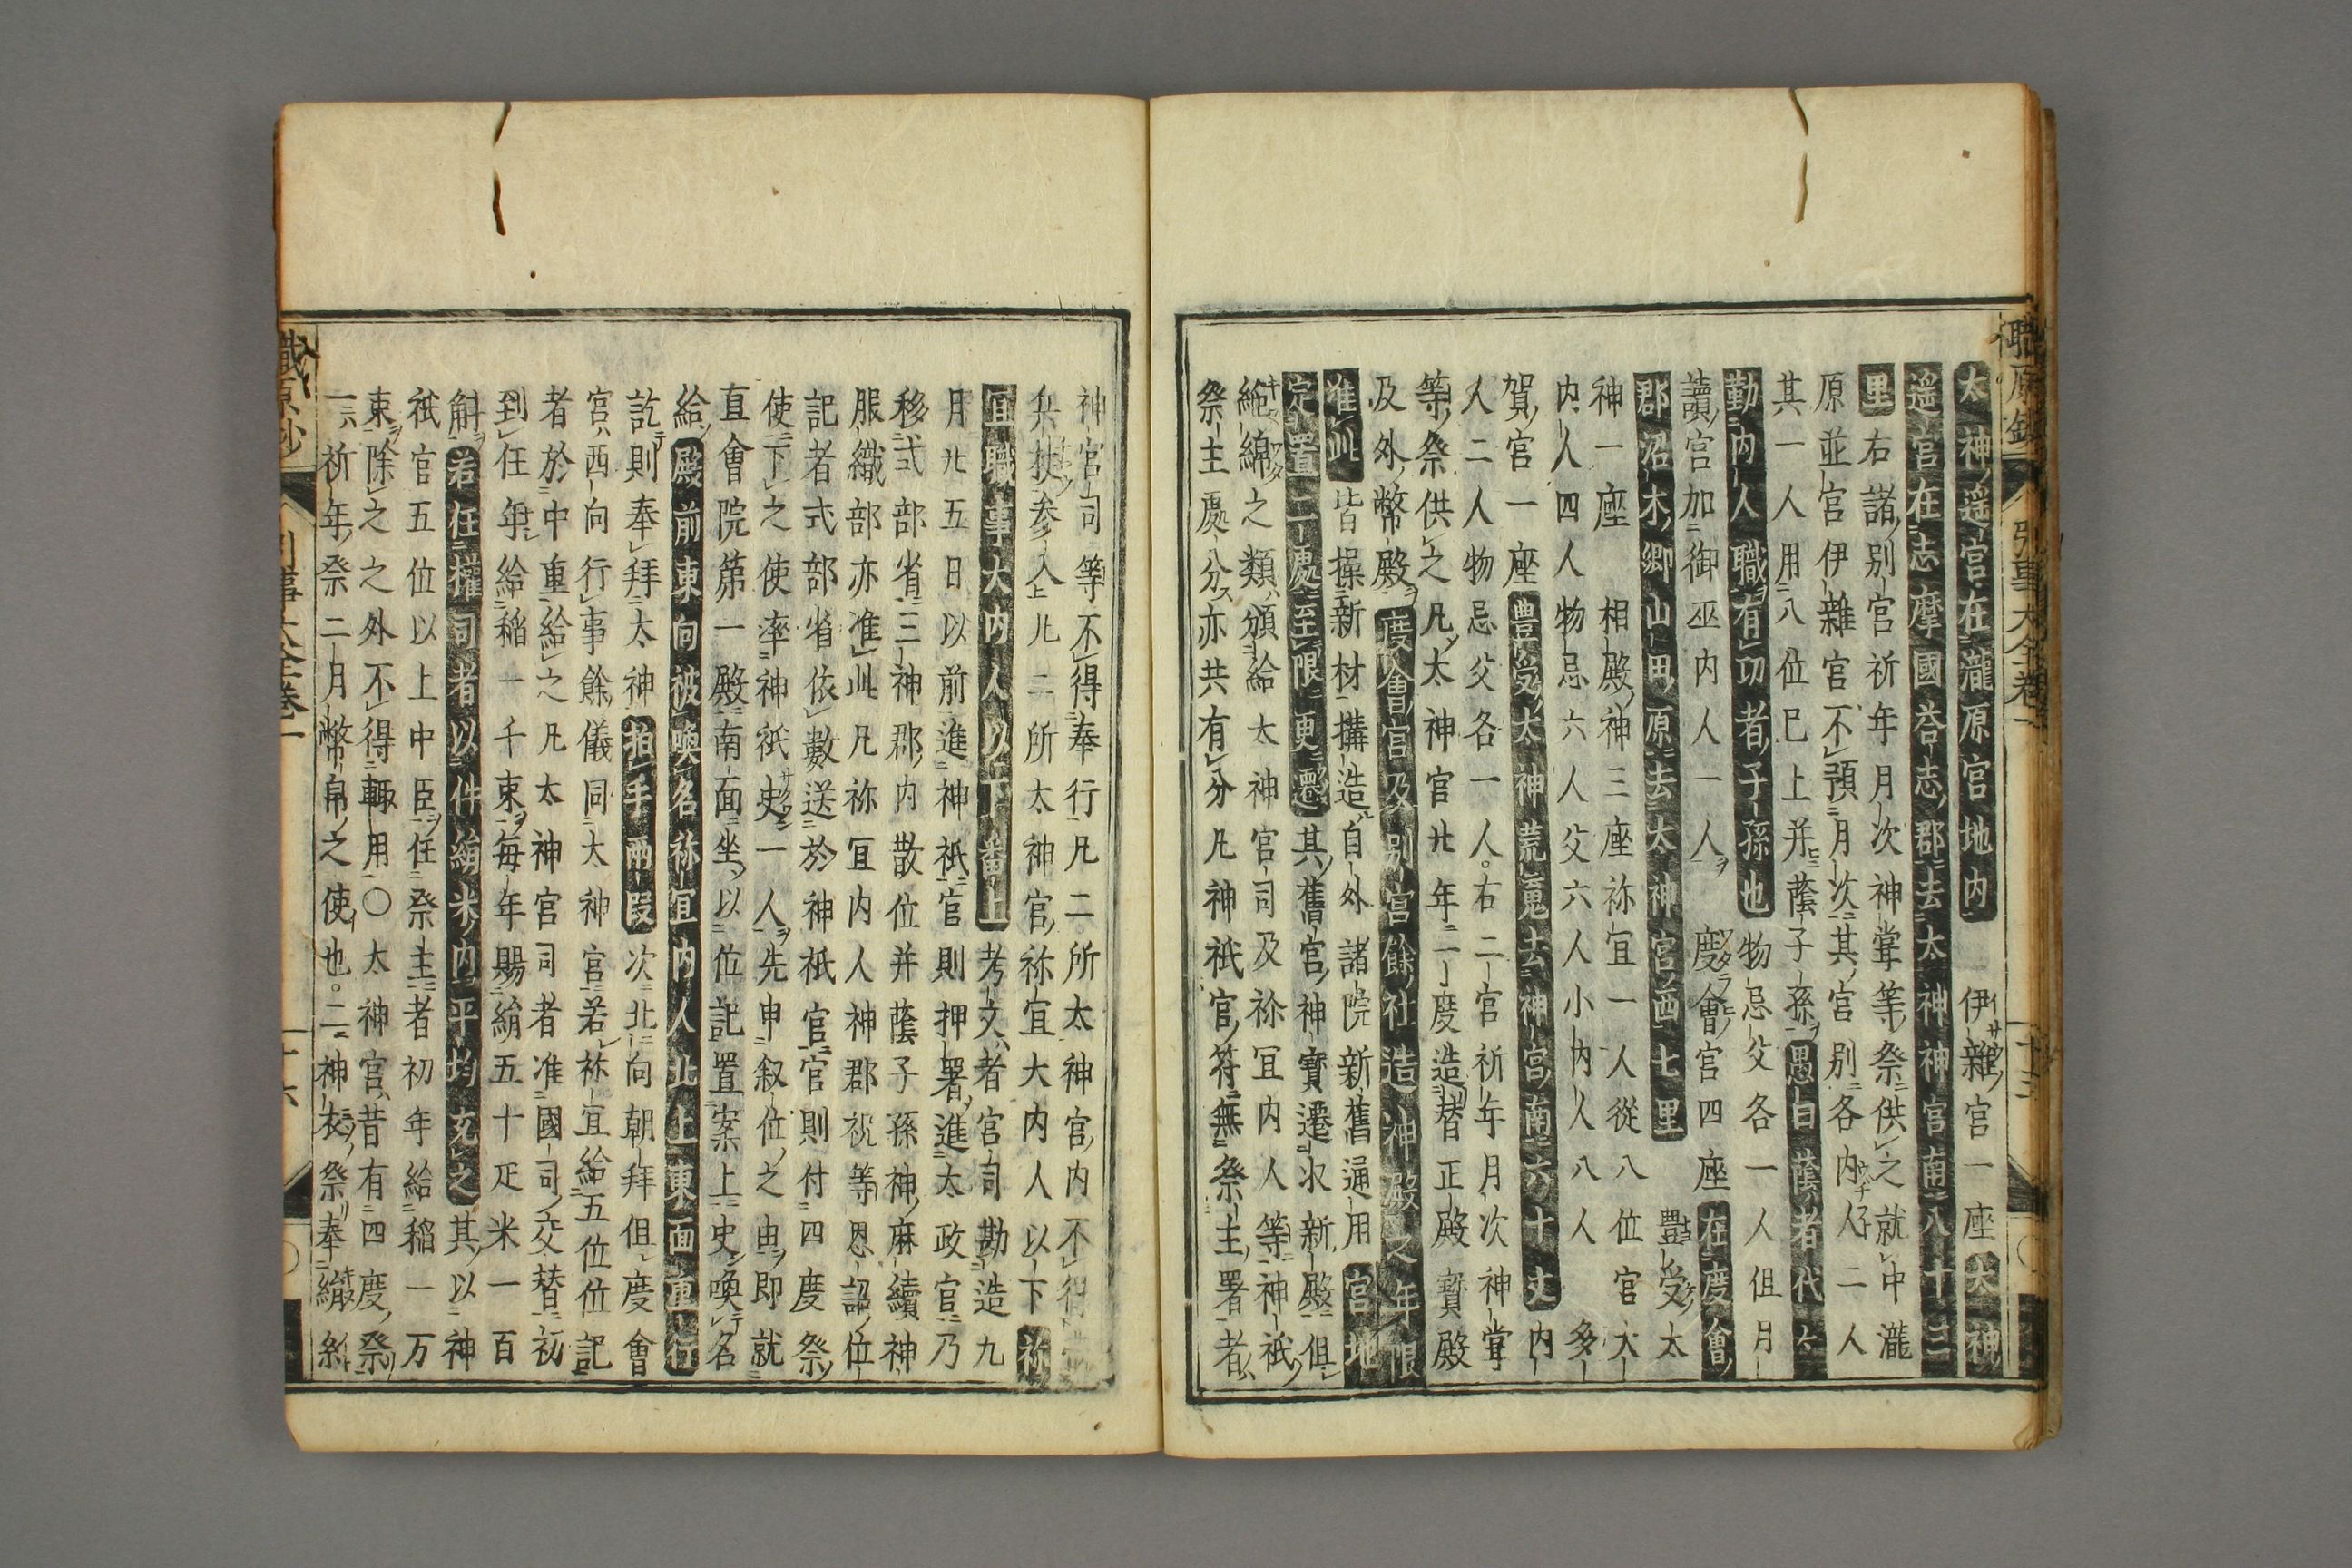 職原鈔 引事大全卷一
太神遥宮在瀧原宮地内 伊雜宮一座太神
遥宮在志摩國荅志郡去太神神宮南八十三
里右諸別宮祈年月次神甞等祭供之就中瀧
原並宮伊雜宮不預月次其宮別各内人二人
其一人用八位已上并蔭子孫愚曰蔭者代々
勤内人職有功者子孫也物忌父各一人但月
讀宮加御巫内人一人 度會宮四座在度會
郡沼木郷山田原去太神宮西七里 豊受太
神一座 相殿神三座祢宜一人從八位官大
内人四人物忌六人父六人小内人八人 多
賀宮一座豊受太神荒䰟去神宮南六十丈内
人二人物忌父各一人。右二宮祈年月次神甞
等祭供之凡太神宮廿年一度造替正殿寶殿
及外幣殿度會宮及別宮餘社造神殿之年限
准此皆操新材搆造自外諸院新舊通用宮地
定置二處至限更遷其舊宮神寶遷收新殿但
絁綿之類頒給太神宮司及祢冝内人等神祇
祭主處分亦共有分凡神祇官符無祭主署者
神宮司等不得奉行凡二所太神宮内不得
兵杖參入上凡二所太神宮祢宜大内人以下祢
宜職事大内人以下番上考文者宮司勘造九
月廿五日以前進神祇官則押署進太政官乃
移式部省三神郡内散位并蔭子孫神麻續神
服織部亦准此凡祢冝内人神郡祝等恩詔位
記者式部省依數送於神祇官官則付四度祭
使下之使率神祇史一人先申叙位之由即就
直會院第一殿南面坐以位記置案上史喚名
給殿前東向被喚名祢宜内人北上東面重行
訖則奉拜太神拍手兩段次北向朝拜但度會
宮西向行事餘儀同太神宮若祢宜給五位位記
者於中重給之凡太神宮司者准國司交替初
到任年給稲一千束毎年賜絹五十疋米一百
斛若任權司者以件絹米内平均充之其以神
祇官五位以上中臣任祭主者初年給稲一万
束除之之外不得輙用〇太神宮昔有四度祭
一祈年祭二月幣帛之使也。二神衣祭奉繒糸
職原鈔 引事大全卷一 十六